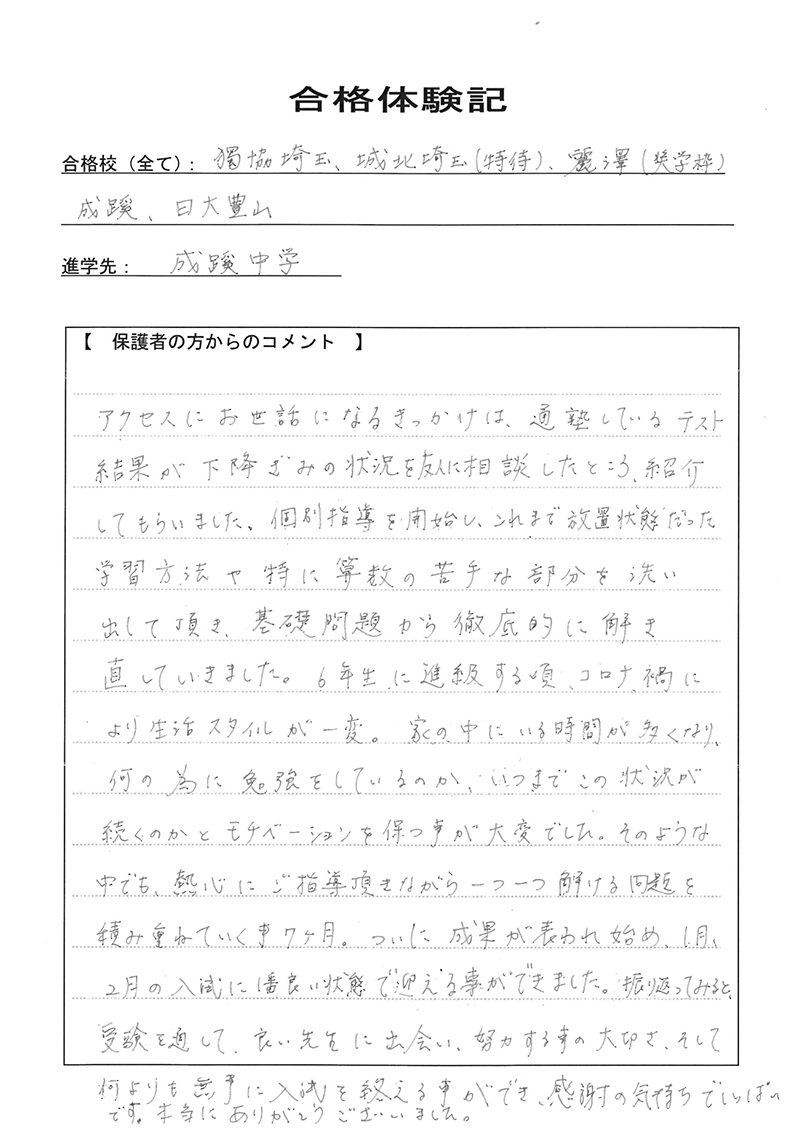 合格体験記
合格校（全て）： 獨協埼玉、城北埼玉（特待）、麗澤（奨学枠）
成蹊、日大豊山
進学先： 成蹊中学
【 保護者の方からのコメント 】
アクセスにお世話になるきっかけは、通塾しているテスト
結果が下降ぎみの状況を友人に相談したところ、紹介
してもらいました。個別指導を開始し、これまで放置状態だった
学習方法や特に算数の苦手な部分を洗い
出して頂き、基礎問題から徹底的に解き
直していきました。6年生に進級する頃、コロナ禍に
より生活スタイルが一変。家の中にいる時間が多くなり、
何の為に勉強をしているのか、いつまでこの状況が
続くのかとモチベーションを保つ事が大変でした。そのような
中でも、熱心にご指導頂きながら一つ一つ解ける問題を
積み重ねていく事7ヶ月。ついに成果が表われ始め、1月、
2月の入試に1番良い状態で迎える事ができました。振り返ってみると、
受験を通して、良い先生に出会い、努力する事の大切さ、そして
何よりも無事に入試を終える事ができ、感謝の気持ちでいっぱい
です。本当にありがとうございました。